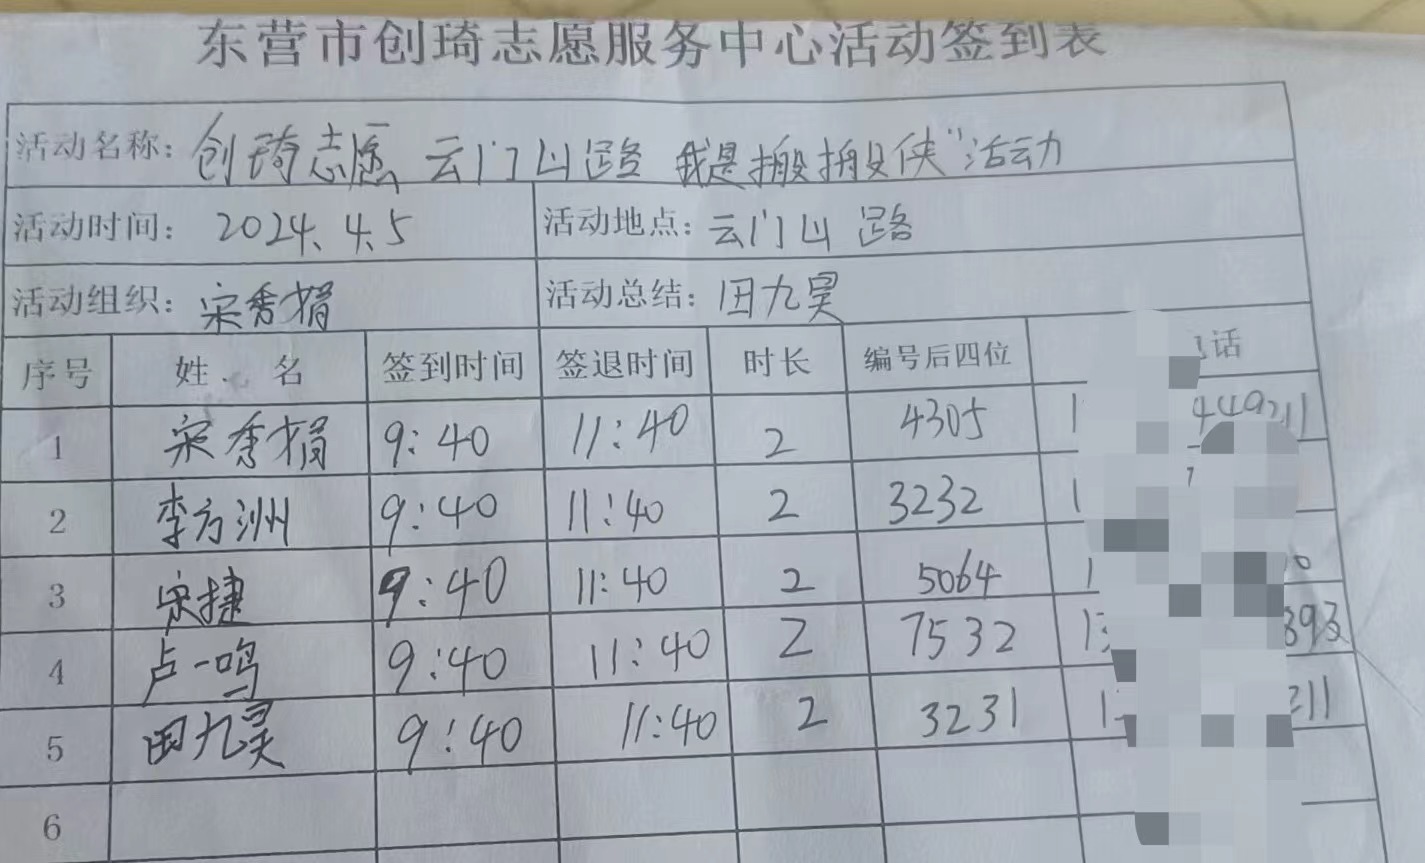 东营市创琦志愿服务中心活动签到表
活动名称: 创琦志愿 云门山路 我是搬搬侠"活动
活动时间: 2024.4.5 活动地点: 云门山路
活动组织: 宋秀娟 活动总结: 田九昊
序号 姓名 签到时间 签退时间 时长 编号后四位 话
1 宋秀娟 9:40 11:40 2 4305 1
2 李方洲 9:40 11:40 2 3232 1
3 宋捷 9:40 11:40 2 5064 1
4 卢一鸣 9:40 11:40 2 7532 1
5 田九昊 9:40 11:40 2 3231 1 211
6